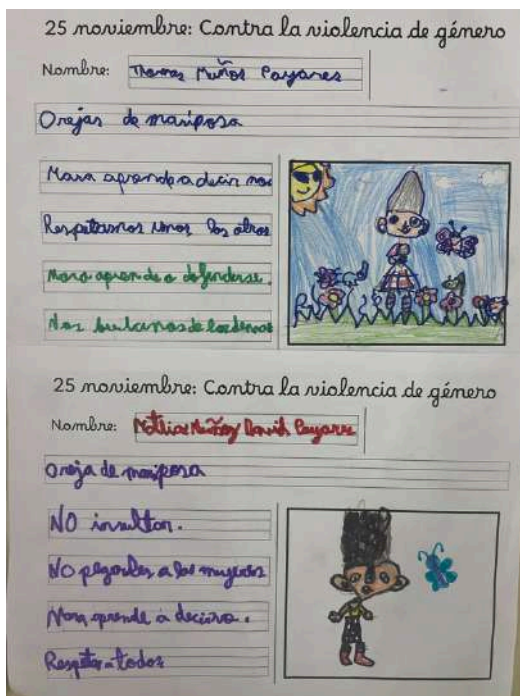 25 noviembre: Contra la violencia de género
Nombre: Thomas Muños Payares
Orejas de mariposa
Mara aprende a decir no
Respetarnos unos los otros
Mara aprende a defenderse.
Nos burlamos de los demas
25 noviembre: Contra la violencia de género
Nombre: David Payares
Oreja de mariposa
NO insultar.
NO pegarles a las mujeres
Mara aprende a
Respetar a todos